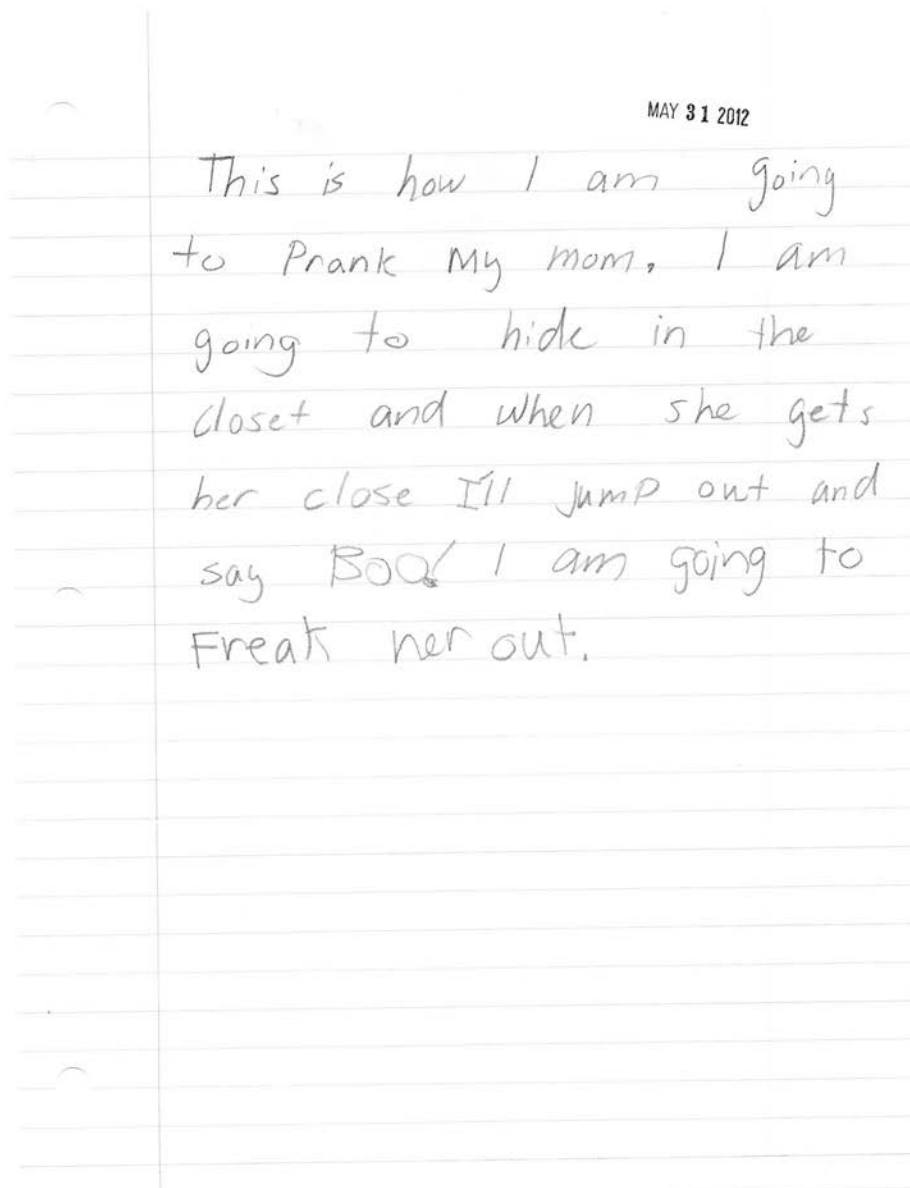 MAY 31 2012
This is how I am going
to Prank My mom. I am
going to hide in the
closet and when she gets
her close I'll jump out and
say Boo! I am going to
Freak her out.